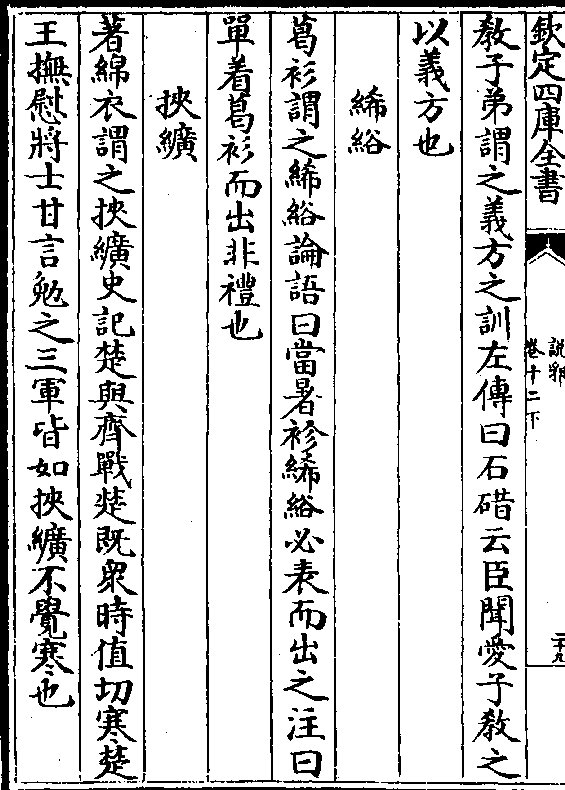 欽定四庫全書
說郛
卷十二下
二十九
教子弟謂之義方之訓左傳曰石碏云臣聞愛子教之
以義方也
絺綌
葛衫謂之絺綌論語曰當暑袗絺綌必表而出之注曰
單着葛衫而出非禮也
挾纊
著綿衣謂之挾纊史記楚與齊戰楚既衆時值切寒楚
王撫慰將士甘言勉之三軍皆如挾纊不覺寒也